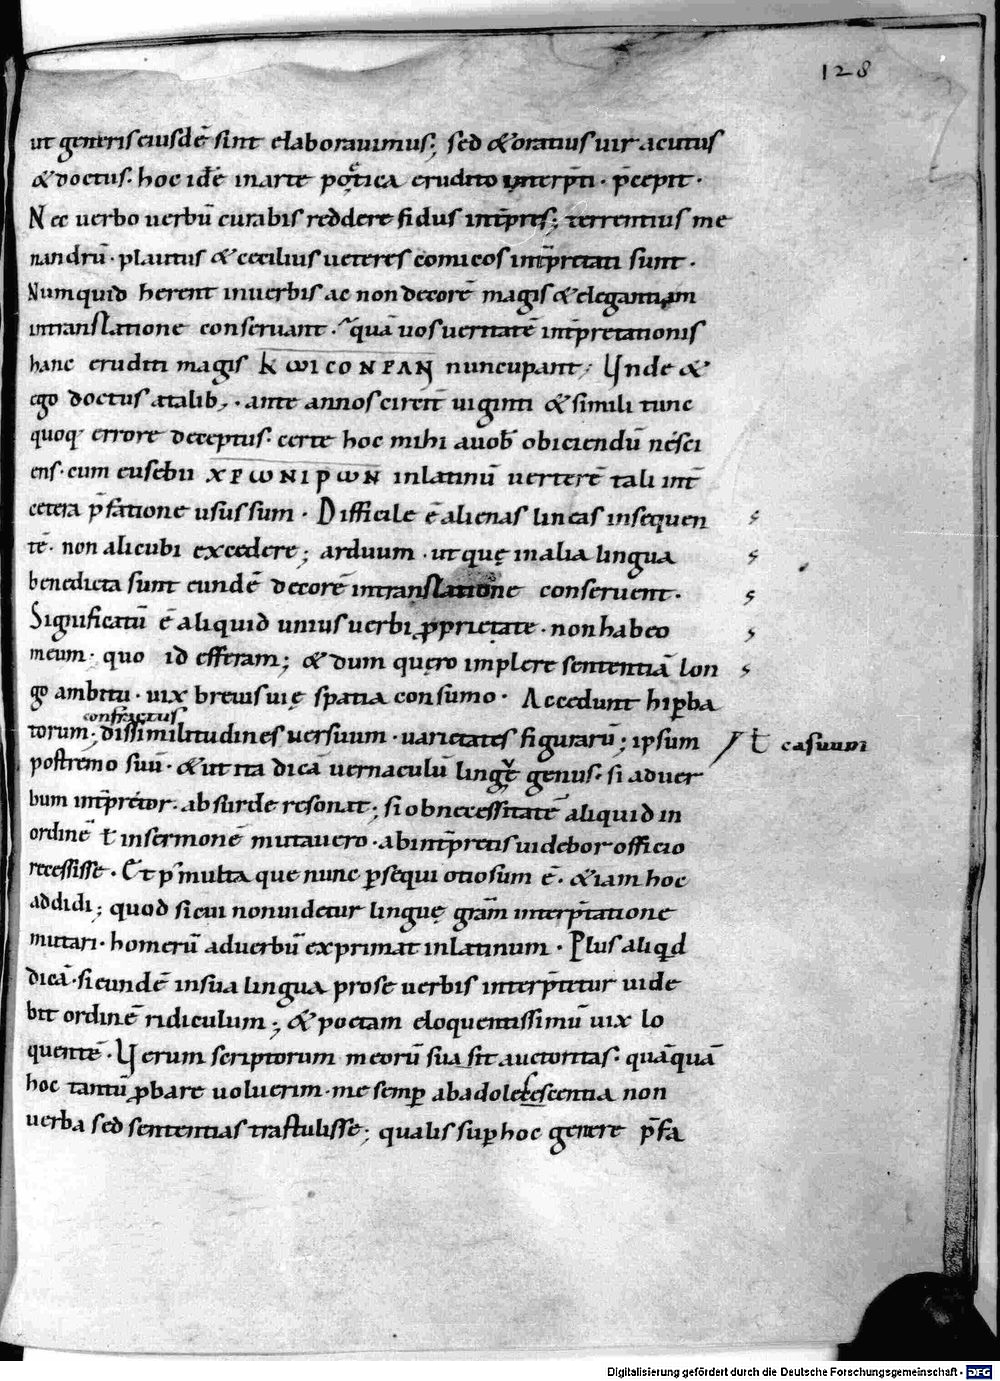 128
ut generis eiusdē sint elaborauimus; sed & oratius uir acutus
& doctus. hoc idē in arte poetica erudito interp̄ti. p̄cepit.
Nec uerbo uerbū curabis reddere fidus int̄pres; terrentius me
nandrū. plautus & cecilius ueteres comicos int̄pretati sunt.
Numquid herent in uerbis ac non decorē magis & elegantiam
in translatione conseruant. quā uos ueritatē int̄pretationis
hanc eruditi magis nuncupant; Unde &
ego doctus a talib;. ante annos circit̄ uiginti & simili tunc
quoq; errore deceptus. certe hoc mihi a uob̄ obiciendū nesci
ens. cum eusebii ΧΡѠΝΙΡѠΝ in latinū uerterē tali int̄
cetera p̄fatione usus sum. Difficile ē alienas lineas insequen
tē. non alicubi excedere; arduum. ut quę in alia lingua
benedicta sunt eundē decorē in translatione conseruent.
Significatū ē aliquid unius uerbi ꝓprietate. non habeo
meum. quo id efferam; & dum quęro implere sententiā lon
go ambitu. uix breuis uię spatia consumo. Accedunt hiꝑba
confractus
torum; dissimilitudines uersuum. uarietates figurarū; ipsum ł casuum
postremo suū. & ut ita dicā uernaculū linguę genus. si ad uer
bum int̄pretor. absurde resonat; si ob necessitatē aliquid in
ordinē ł in sermonē mutauero. ab int̄pretis uidebor officio
recessisse. Et p̾ multa que nunc ꝑsequi otiosum ē. & iam hoc
addidi; quod si cui non uidetur linguę gr̄am interp̄tatione
mutari. homerū ad uerbū exprimat in latinum. Plus aliqd
dicā. si eundē in sua lingua prose uerbis interp̄tetur uide
bit ordinē ridiculum; & poetam eloquentissimū uix lo
quentē. Uerum scriptorum meorū sua sit auctoritas. quāquā
hoc tantū ꝓbare uoluerim. me semꝑ ab adolescentia non
uerba sed sententias trastulisse; qualis suꝑ hoc genere p̄fa
Digitalisierung gefördert durch die Deutsche Forschungsgemeinschaft - DFG